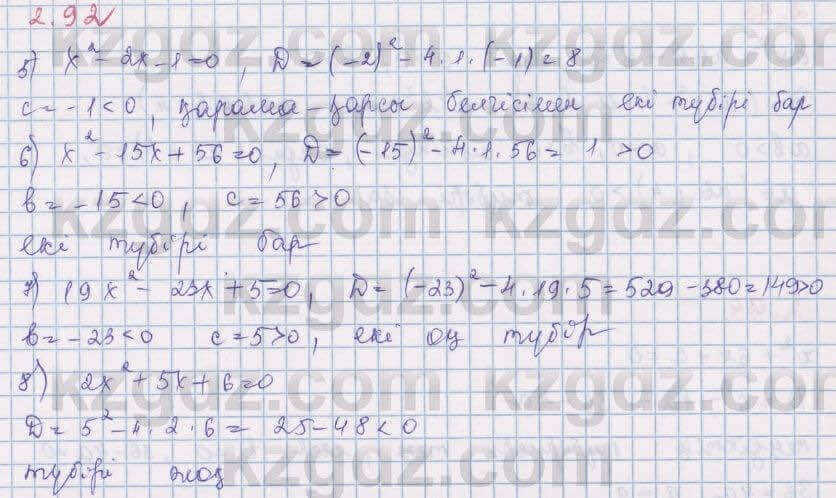 2.92
5) x² - 2x - 1 = 0, D = (-2)² - 4·1·(-1) = 8
c = -1 < 0, қарама-қарсы белгісімен екі түбірі бар
6) x² - 15x + 56 = 0, D = (-15)² - 4·1·56 = 1 > 0
b = -15 < 0, c = 56 > 0
екі түбірі бар
7) 19x² - 23x + 5 = 0, D = (-23)² - 4·19·5 = 529 - 380 = 149 > 0
b = -23 < 0 c = 5 > 0, екі оң түбір
8) 2x² + 5x + 6 = 0
D = 5² - 4·2·6 = 25 - 48 < 0
түбірі жоқ
kzgdz.com